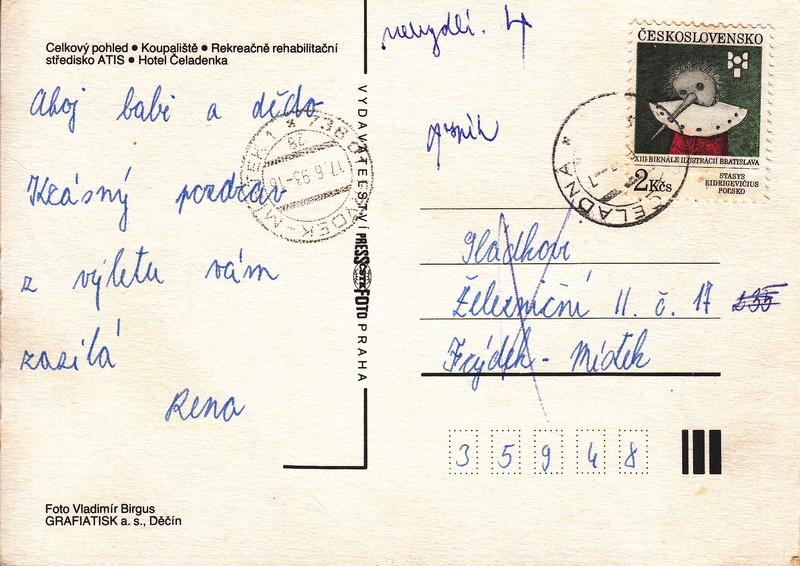 Celkový pohled • Koupaliště • Rekreačně rehabilitační
středisko ATIS • Hotel Čeladenka
Ahoj babi a dědo
Krásný pozdrav
z výletu vám
zasílá
Rena
Foto Vladimír Birgus
GRAFIATISK a. s., Děčín
VYDAVATELSTVÍ PRESSFOTO PRAHA
17.6.93-18
4
ČESKOSLOVENSKO
XIII·BIENÁLE ILUSTRÁCIÍ BRATISLAVA
2 Kčs
STASYS
EIDRIGEVIČIUS
POĽSKO
ČELADNÁ
Gládkovi
Železniční 11. č. 17
Frýdek - Místek
3 5 9 4 8